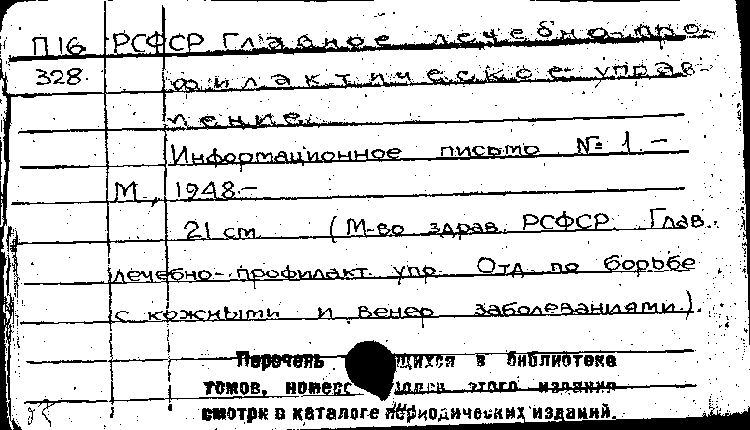 П16 РСФСР Главное лечебно-про-
328. филактическое управ-
ление.
Информационное письмо № 1. —
М., 1948.—
21 см (М-во здрав. РСФСР. Глав.
лечебно-профилакт. упр. Отд. по борьбе
с кожными и венер. заболеваниями.).
Перечень в библиотеке
томов, этого издания
смотри в каталоге периодических изданий.